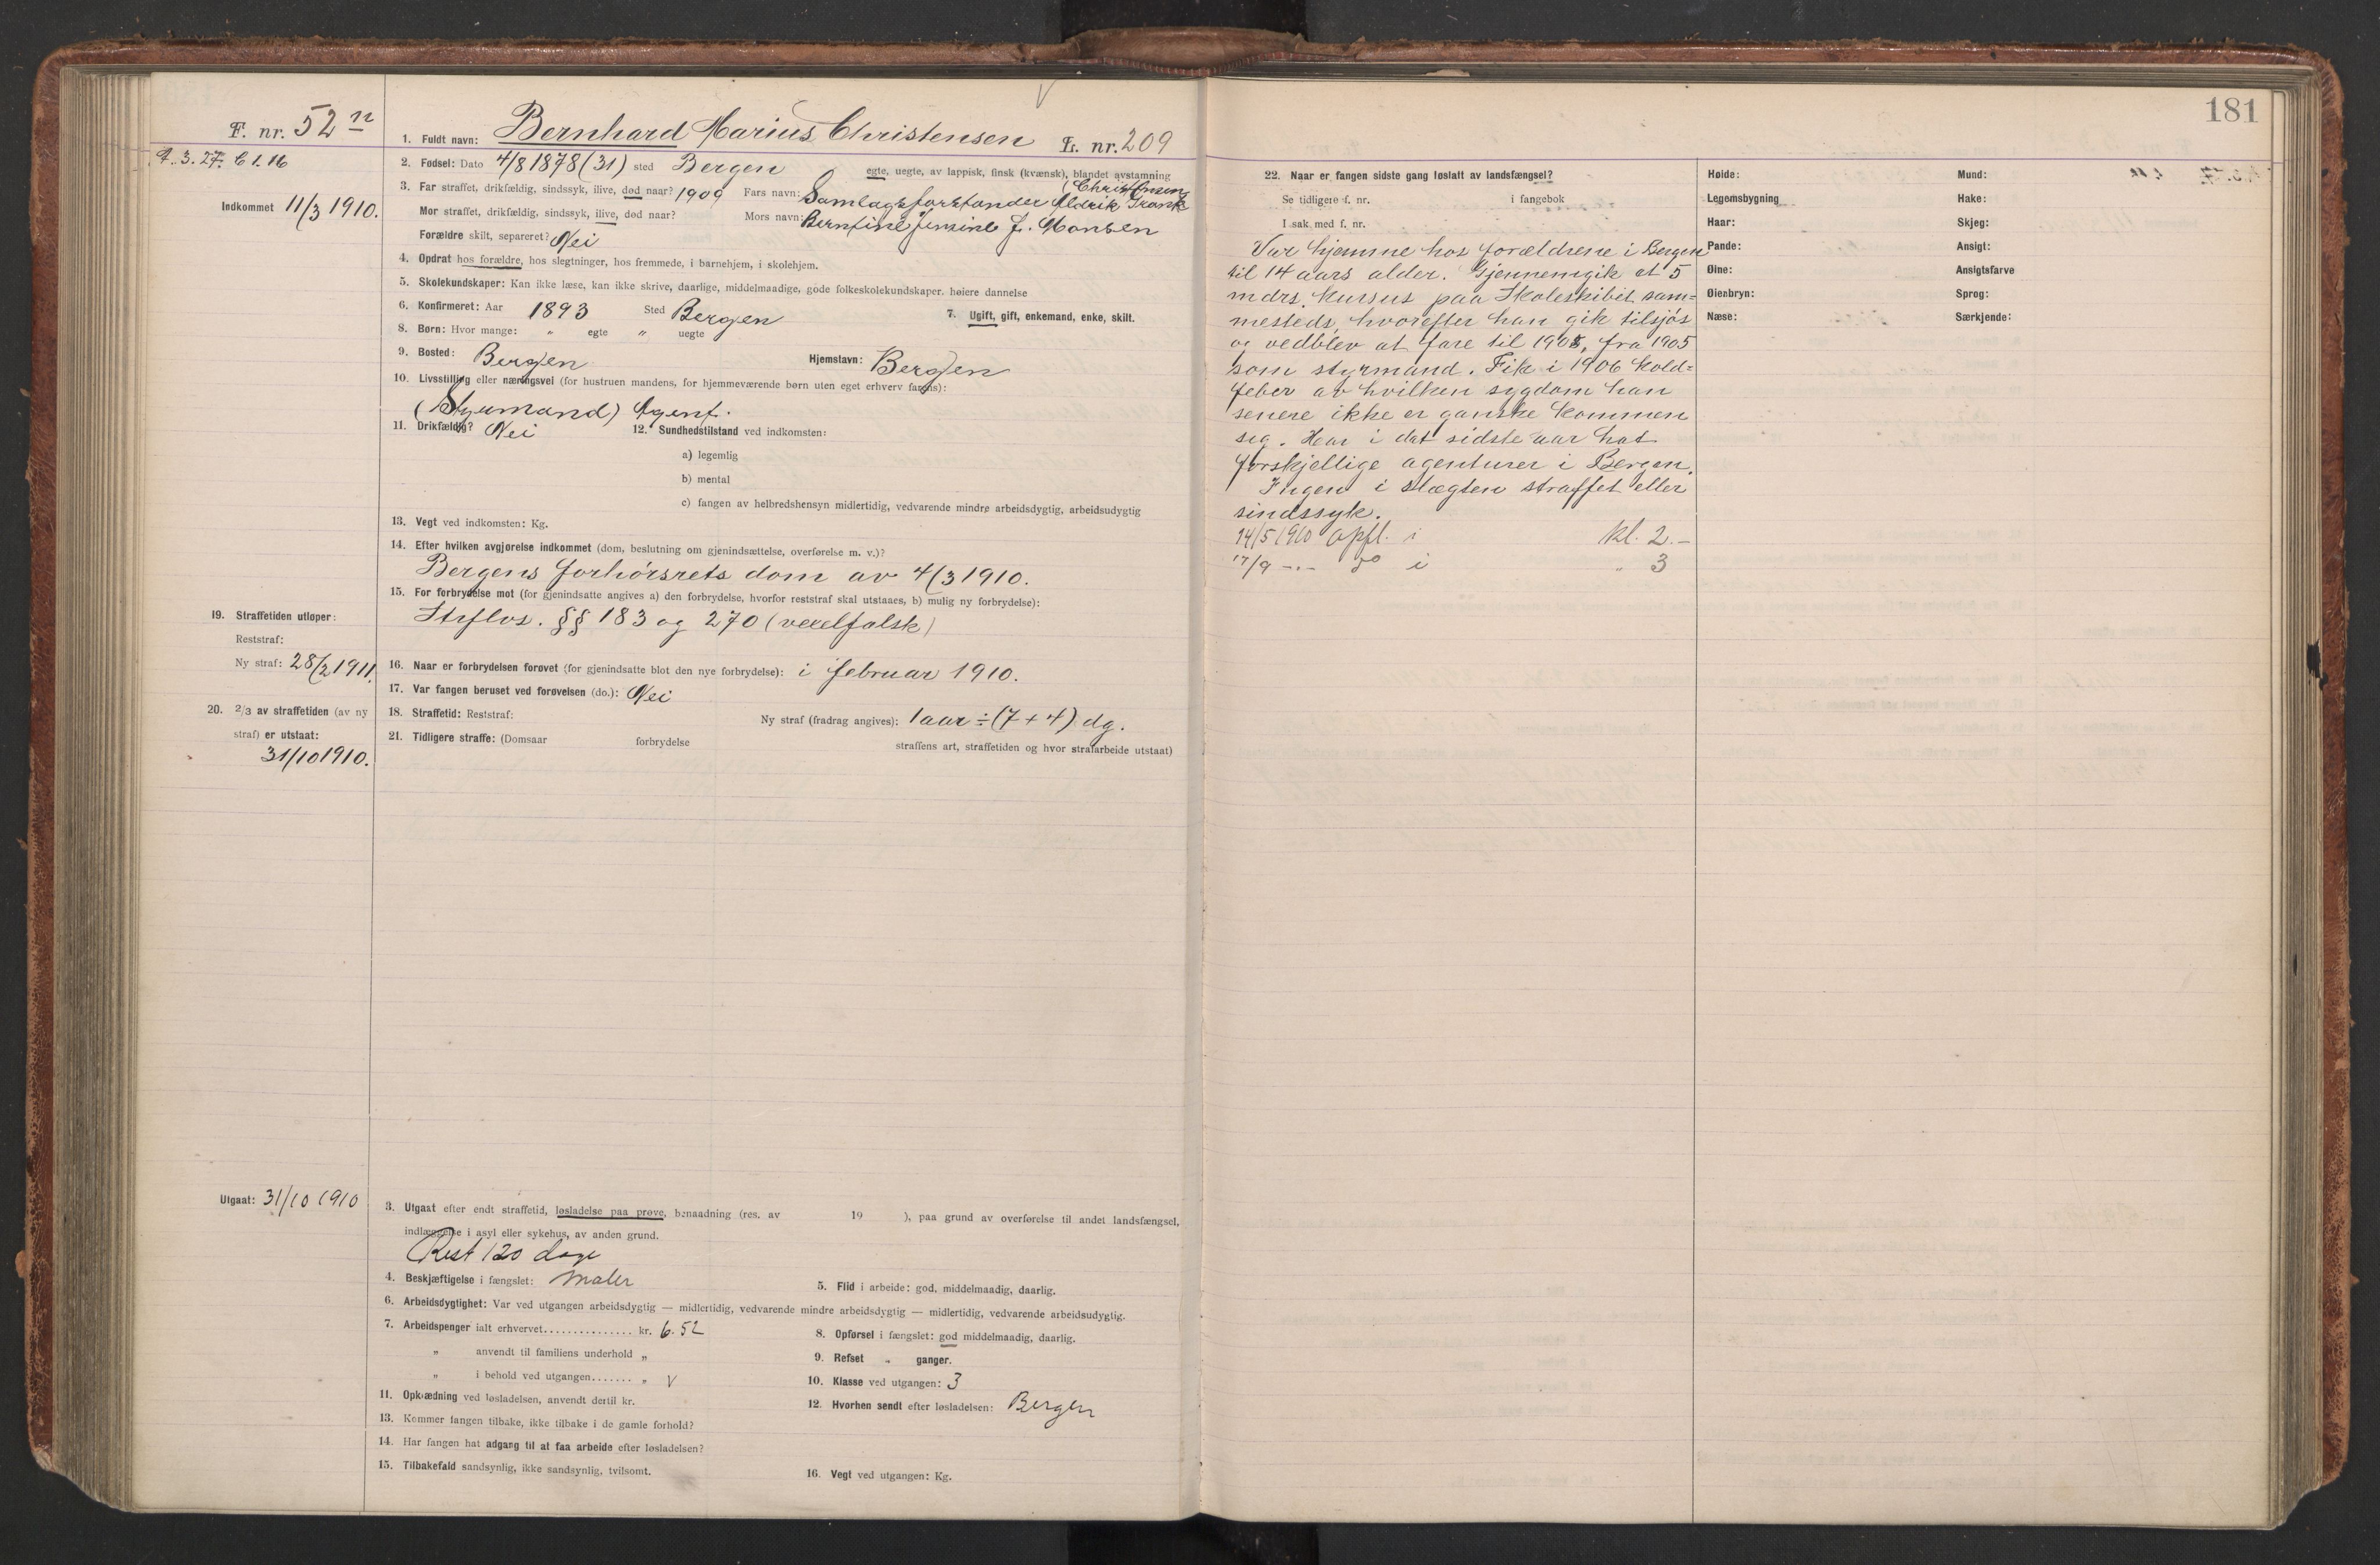 181
F. nr. 52 n
A. 3. 27. C 1. 16
Indkommet 11/3 1910.
1. Fuldt navn: Bernhard Marius Christensen L. nr. 209
2. Fødsel: Dato 4/8 1878 (31) sted Bergen egte, uegte, av lappisk, finsk (kvænsk), blandet avstamning
3. Far straffet, drikfældig, sindssyk, ilive, død naar? 1909 Fars navn: Samlagsforstander Aldrik Frank Christensen
Mor straffet, drikfældig, sindssyk, ilive, død naar? Mors navn: Jensine J. Monsen
Forældre skilt, separeret? Nei
4. Opdrat hos forældre, hos slegtninger, hos fremmede, i barnehjem, i skolehjem.
5. Skolekundskaper: Kan ikke læse, kan ikke skrive, daarlige, middelmaadige, gode folkeskolekundskaper, høiere dannelse
6. Konfirmeret: Aar 1893 Sted Bergen 7. Ugift, gift, enkemand, enke, skilt.
8. Børn: Hvor mange: " egte " uegte
9. Bosted: Bergen Hjemstavn: Bergen
10. Livsstilling eller næringsvei (for hustruen mandens, for hjemmeværende børn uten eget erhverv farens):
(Styrmand) Agent.
11. Drikfældig? Nei 12. Sundhedstilstand ved indkomsten:
a) legemlig
b) mental
c) fangen av helbredshensyn midlertidig, vedvarende mindre arbeidsdygtig, arbeidsudygtig
13. Vegt ved indkomsten: Kg.
14. Efter hvilken avgjørelse indkommet (dom, beslutning om gjenindsættelse, overførelse m. v.)?
Bergens forhørsrets dom av 4/3 1910.
15. For forbrydelse mot (for gjenindsatte angives a) den forbrydelse, hvorfor reststraf skal utstaaes, b) mulig ny forbrydelse):
Strflvs. §§ 183 og 270 (vexelfalsk)
19. Straffetiden utløper:
Reststraf:
Ny straf: 28/2 1911.
16. Naar er forbrydelsen forøvet (for gjenindsatte blot den nye forbrydelse): i februar 1910.
17. Var fangen beruset ved forøvelsen (do.): Nei
20. 2/3 av straffetiden (av ny
straf) er utstaat:
31/10 1910.
18. Straffetid: Reststraf: Ny straf (fradrag angives): 1 aar ÷ (7 + 4) dg.
21. Tidligere straffe: (Domsaar forbrydelse straffens art, straffetiden og hvor strafarbeide utstaat)
Utgaat: 31/10 1910
3. Utgaat efter endt straffetid, løsladelse paa prøve, benaadning (res. av 19 ), paa grund av overførelse til andet landsfængsel,
indlæggelse i asyl eller sykehus, av anden grund.
Rest 120 dage
4. Beskjæftigelse i fængslet: Maler 5. Flid i arbeide: god, middelmaadig, daarlig.
6. Arbeidsdygtighet: Var ved utgangen arbeidsdygtig — midlertidig, vedvarende mindre arbeidsdygtig — midlertidig, vedvarende arbeidsudygtig.
7. Arbeidspenger ialt erhvervet............... kr. 6.52 8. Opførsel i fængslet: god middelmaadig, daarlig.
" anvendt til familiens underhold " 9. Refset " ganger.
" i behold ved utgangen....... " V 10. Klasse ved utgangen: 3
11. Opklædning ved løsladelsen, anvendt dertil kr. 12. Hvorhen sendt efter løsladelsen: Bergen
13. Kommer fangen tilbake, ikke tilbake i de gamle forhold?
14. Har fangen hat adgang til at faa arbeide efter løsladelsen?
15. Tilbakefald sandsynlig, ikke sandsynlig, tvilsomt. 16. Vegt ved utgangen: Kg.
22. Naar er fangen sidste gang løslatt av landsfængsel?
Se tidligere f. nr. i fangebok
I sak med f. nr.
Var hjemme hos forældrene i Bergen
til 14 aars alder. Gjennemgik et 5
mdrs. kursus paa Skoleskibet sam=
mesteds, hvorefter han gik tilsjøs
og vedblev at fare til 1908, fra 1905
som styrmand. Fik i 1906 kold=
feber av hvilken sygdom han
senere ikke er ganske kommen
seg. Har i det sidste aar hat
forskjellige agenturer i Bergen.
Ingen i slægten straffet eller
sindssyk.
14/5 1910 opfl. i kl. 2.-
17/9 -"- do i " 3
Høide: Mund:
Legemsbygning Hake:
Haar: Skjeg:
Pande: Ansigt:
Øine: Ansigtsfarve
Øienbryn: Sprog:
Næse: Særkjende: